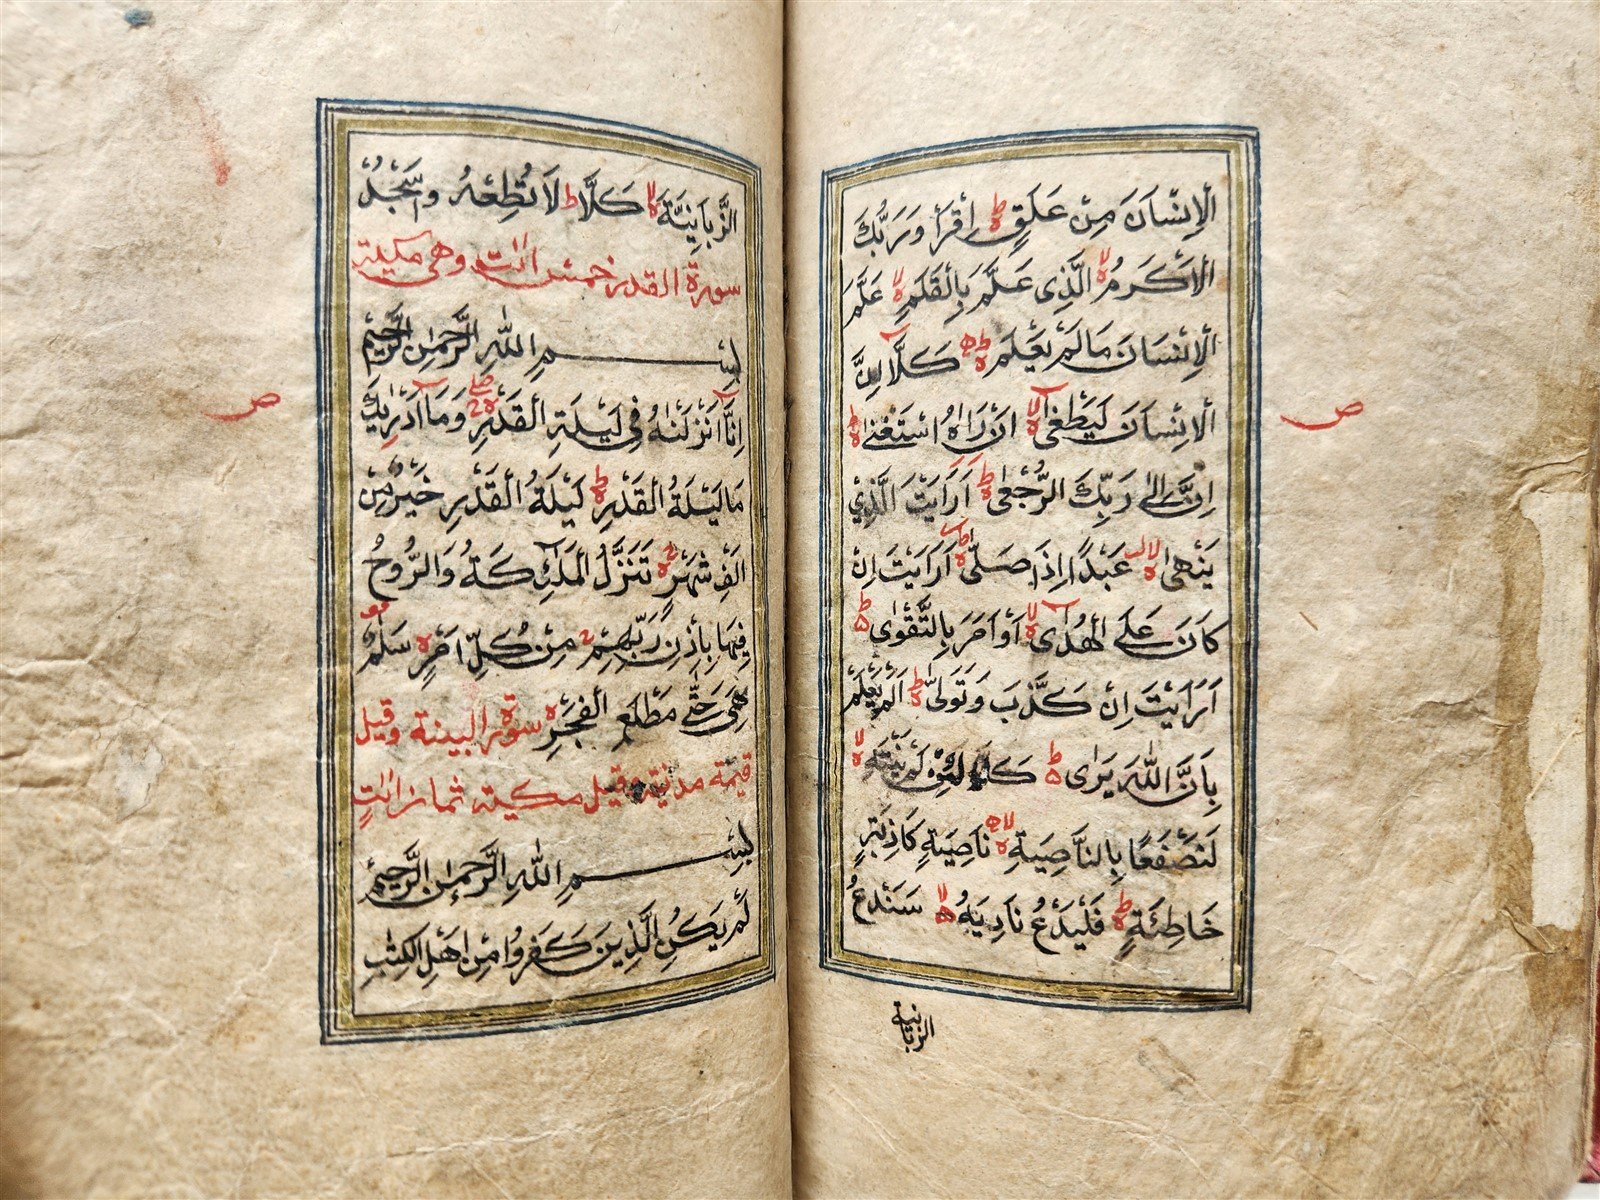 ص
الْاِنْسَانَ مِنْ عَلَقٍ ط اِقْرَأْ وَرَبُّكَ
الْاَكْرَمُ لا الَّذِى عَلَّمَ بِالْقَلَمِ لا عَلَّمَ
الْاِنْسَانَ مَا لَمْ يَعْلَمْ ط كَلَّا اِنَّ
الْاِنْسَانَ لَيَطْغٰى لا اَنْ رَاٰهُ اسْتَغْنٰى ط
اِنَّ اِلٰى رَبِّكَ الرُّجْعٰى ط اَرَاَيْتَ الَّذِي
يَنْهٰى لا عَبْدًا اِذَا صَلّٰى ط اَرَاَيْتَ اِنْ
كَانَ عَلَى الْهُدٰى لا اَوْ اَمَرَ بِالتَّقْوٰى ط
اَرَاَيْتَ اِنْ كَذَّبَ وَتَوَلّٰى ط اَلَمْ يَعْلَمْ
بِاَنَّ اللّٰهَ يَرٰى ط كَلَّا لَئِنْ لَمْ يَنْتَهِ لا
لَنَسْفَعًا بِالنَّاصِيَةِ لا نَاصِيَةٍ كَاذِبَةٍ
خَاطِئَةٍ ط فَلْيَدْعُ نَادِيَهُ لا سَنَدْعُ
الزبانية
ص
الزَّبَانِيَةَ لا كَلَّا ط لَا تُطِعْهُ وَاسْجُدْ
سورة القدر خمس ايات وهى مكية
بِسْمِ اللّٰهِ الرَّحْمٰنِ الرَّحِيمِ
اِنَّا اَنْزَلْنٰهُ فِي لَيْلَةِ الْقَدْرِ صلى وَمَا اَدْرٰيكَ
مَا لَيْلَةُ الْقَدْرِ ط لَيْلَةُ الْقَدْرِ خَيْرٌ مِنْ
اَلْفِ شَهْرٍ تَنَزَّلُ الْمَلٰٓئِكَةُ وَالرُّوحُ
فِيهَا بِاِذْنِ رَبِّهِمْ مِنْ كُلِّ اَمْرٍ سَلٰمٌ
هِىَ حَتّٰى مَطْلَعِ الْفَجْرِ سورة البينة وقيل
قيمة مدنية وقيل مكية ثمان ايات
بِسْمِ اللّٰهِ الرَّحْمٰنِ الرَّحِيمِ
لَمْ يَكُنِ الَّذِينَ كَفَرُوا مِنْ اَهْلِ الْكِتٰبِ